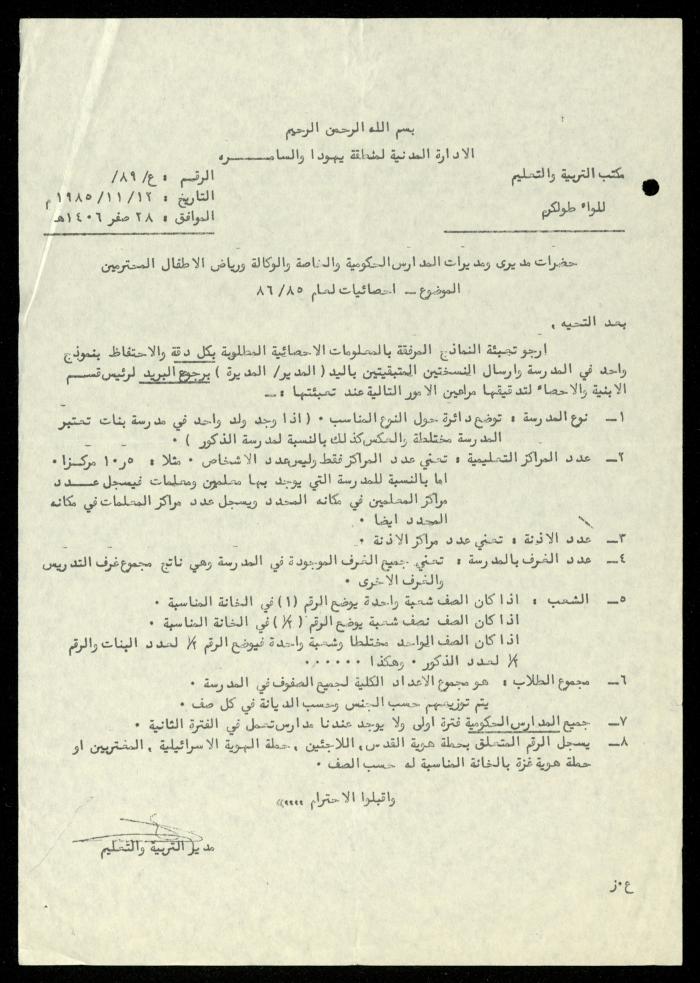 بسم الله الرحمن الرحيم
الادارة المدنية لمنطقة يهودا والسامـــــره
مكتب التربية والتعليم
للواء طولكرم
الرقم : ع/ ٨٩/
التاريخ : ١٩٨٥/١١/١٢ م
الموافق : ٢٨ صفر ١٤٠٦هـ
حضرات مديرى ومديرات المدارس الحكومية والخاصة والوكالة ورياض الاطفال المحترمين
الموضوع ــ احصائيات لعام ٨٦/٨٥
بعد التحيه ،
ارجو تعبئة النماذج المرفقة بالمعلومات الاحصائية المطلوبة بكل دقة والاحتفاظ بنموذج
واحد في المدرسة وارسال النسختين المتبقيتين باليد ( المدير/ المديرة ) برجوع البريد لرئيس قسـم
الابنية والاحصاء لتدقيقها مراعين الامور التالية عند تعبئتها : ــ
١ــ نوع المدرسة : توضع دائرة حول النوع المناسب ٠ ( اذا وجد ولد واحد في مدرسة بنات تعتبر
المدرسة مختلطة والعكس كذلك بالنسبة لمدرسة الذكور ) ٠
٢ــ عدد المراكز التعليمية : تعني عدد المراكز فقط وليس عدد الاشخاص ٠ مثلا : ٥ر١٠ مركزا ٠
اما بالنسبة للمدرسة التي يوجد بها معلمين ومعلمات فيسجل عـــدد
مراكز المعلمين في مكانه المحدد ويسجل عدد مراكز المعلمات في مكانه
المحدد ايضا ٠
٣ــ عدد الاذنة : تعني عدد مراكز الاذنة ٠
٤ــ عدد الغرف بالمدرسة : تعني جميع الغرف الموجودة في المدرسة وهي ناتج مجموع غرف التدريس
والغرف الاخرى ٠
٥ــ الشعب : اذا كان الصف شعبة واحدة يوضع الرقم (١) في الخانة المناسبة ٠
اذا كان الصف نصف شعبة يوضع الرقم (١/٢) في الخانة المناسبة ٠
اذا كان الصف الواحد مختلطا وشعبة واحدة فيوضع الرقم ١/٢ لعدد البنات والرقم
١/٢ لعدد الذكور ٠ وهكذا ٠٠٠٠٠٠
٦ــ مجموع الطلاب : هو مجموع الاعداد الكلية لجميع الصفوف في المدرسة ٠
يتم توزيعهم حسب الجنس وحسب الديانة في كل صف ٠
٧ــ جميع المدارس الحكومية فترة اولى ولا يوجد عندنا مدارس تعمل في الفترة الثانية ٠
٨ــ يسجل الرقم المتعلق بحملة هوية القدس , اللاجئين , حملة الهوية الاسرائيلية , المغتربين او
حملة هوية غزة بالخانة المناسبة له حسب الصف ٠
واقبلوا الاحترام ،،،،»
مدير التربية والتعليم
ع٠ز